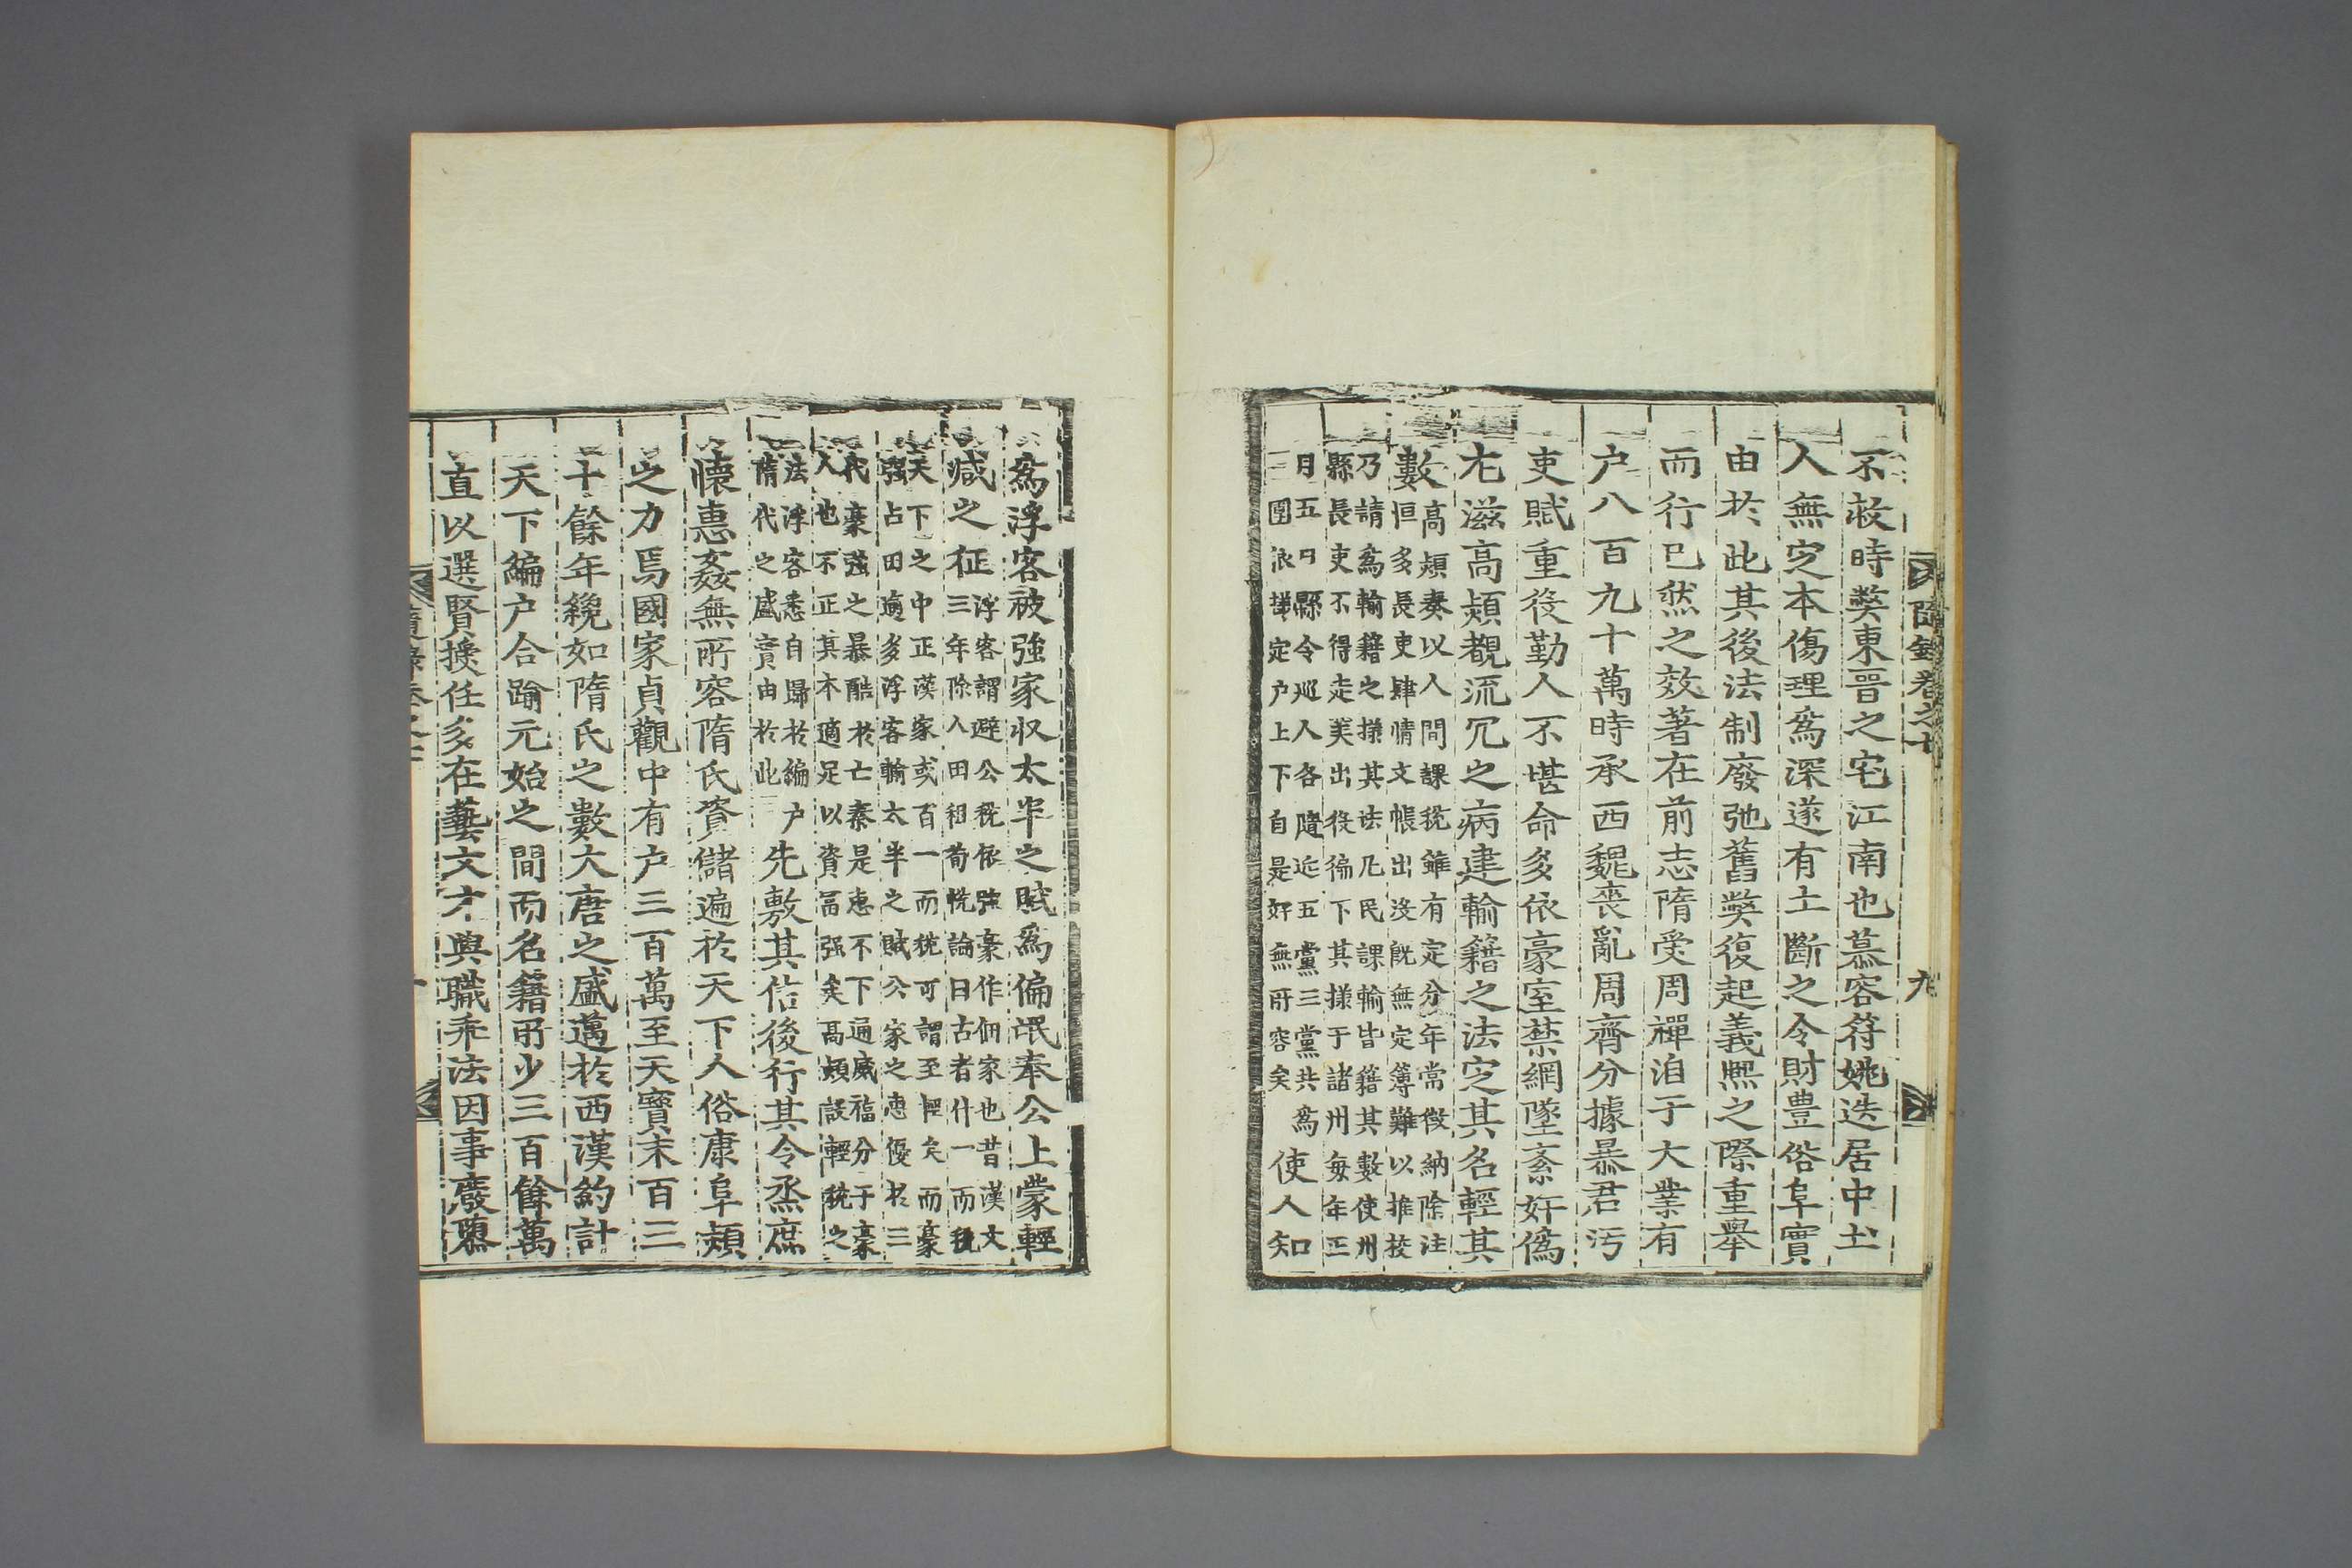 不救時獘東晉之宅江南也慕容符姚迭居中土
人無定本傷理爲深遂有土斷之令財豊俗阜實
由於此其後法制廢弛舊獘復起義熈之際重舉
而行已然之效著在前志隋受周禪洎于大業有
户八百九十萬時承西魏喪亂周齊分據暴君汚
吏賦重役勤人不堪命多依豪室禁網墜紊奸僞
尤滋高熲覩流冗之病建輸籍之法定其名輕其
數高熲奏以人間課税雖有定分年常徵納除注
恒多長吏肆情文帳出沒旣無定簿難以推校
乃請爲輸籍之㨾其法凡民課輸皆籍其數使州
縣長吏不得走美出役徧下其㨾于諸州每年正
月五日縣令巡人各隨近五黨三黨共爲
一團依㨾定户上下自是奸無所容矣使人知
隋錄卷之十
九
爲浮客被强家収太半之賦爲偏氓奉公上蒙輕
减之征浮客謂避公税依强豪作佃家也昔漢文
三年除人田租荀悅論曰古者什一而税
天下之中正漢家或百一而税可謂至輕矣而豪
强占田逾多浮客輸太半之賦公家之惠優於三
代豪强之暴酷於亡秦是惠不下通威福分于豪
人也不正其本適足以資富强矣高熲設輕税之
法浮客悉自歸於編户
隋代之盛實由於此先敷其信後行其令烝庶
懷惠姦無所容隋氏資儲遍於天下人俗康阜熲
之力焉國家貞觀中有户三百萬至天寶末百三
十餘年纔如隋氏之數大唐之盛邁於西漢約計
天下編户合踰元始之間而名籍所少三百餘萬
直以選賢授任多在藝文才與職乖法因事廢隳